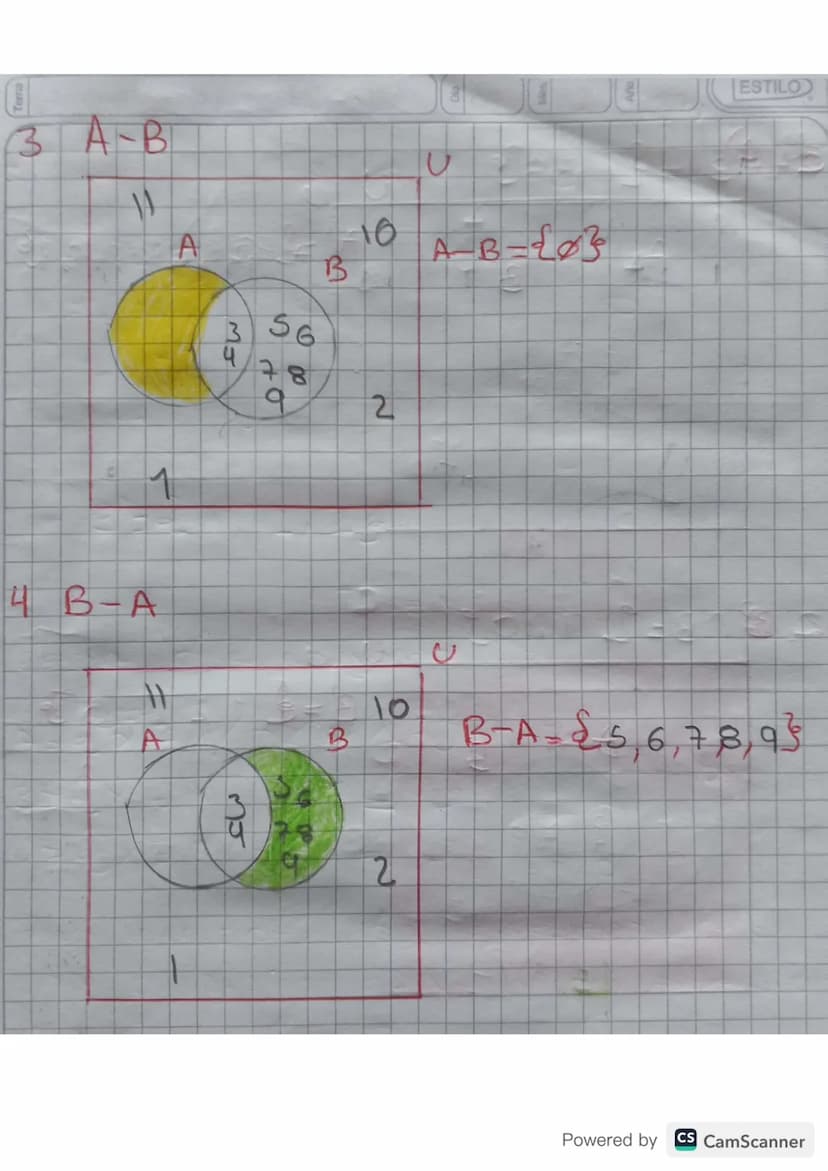 Tema Dia Mes Año ESTILO
3 A-B
U
11
A
10
B
A-B={∅}
3 5 6
4 7 8
9
2
1
4 B-A
U
11
10
A
B
B-A={5,6,7,8,9}
3 5 6
4 7 8
9
2
1
Powered by CS CamScanner